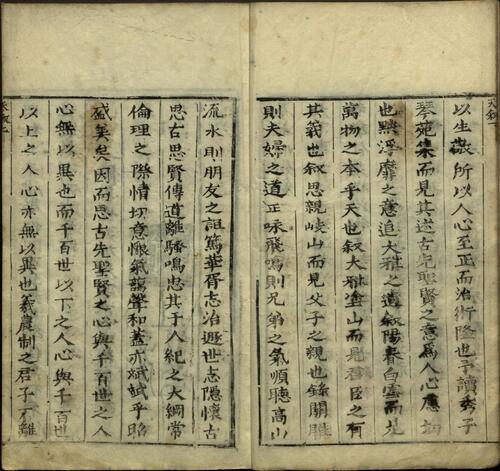 以生敬所以人心至正而治術隆也予讀秀子
琴苑集而見其述古先聖賢之意為人心慮
也黜浮靡之意追大雅之遺敘陽春白雲而是
萬物之本乎天也敘大雅塗山而是君臣之有
其義也敘思親峡山而見父子之親也錄關雎
則夫婦之道正咏飛鳴則兄弟之氣順聽高山
流水則朋友之誼篤華胥志治遊世志隱懷古
思古思賢傳道離騷鳴忠其于人紀之大綱常
倫理之際情切意懇氣藹聲和蓋亦斌斌乎昭
盛美矣因而思古先聖賢之心與千百世之人
心無以異也而千百世以下之人心與千百世
以上之人心亦無以異也羲農制之君子不離